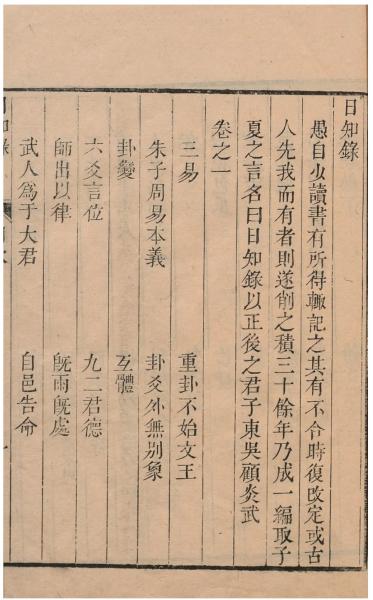 日知錄
愚自少讀書有所得輒記之其有不合時復改定或古
人先我而有者則遂削之積三十餘年乃成一編取子
夏之言名曰日知錄以正後之君子東吳顧炎武
卷之一
三易　重卦不始文王
朱子周易本義　卦爻外無別象
卦變　互體
六爻言位　九二君德
師出以律　旣雨旣處
武人爲于大君　自邑告命
日知錄